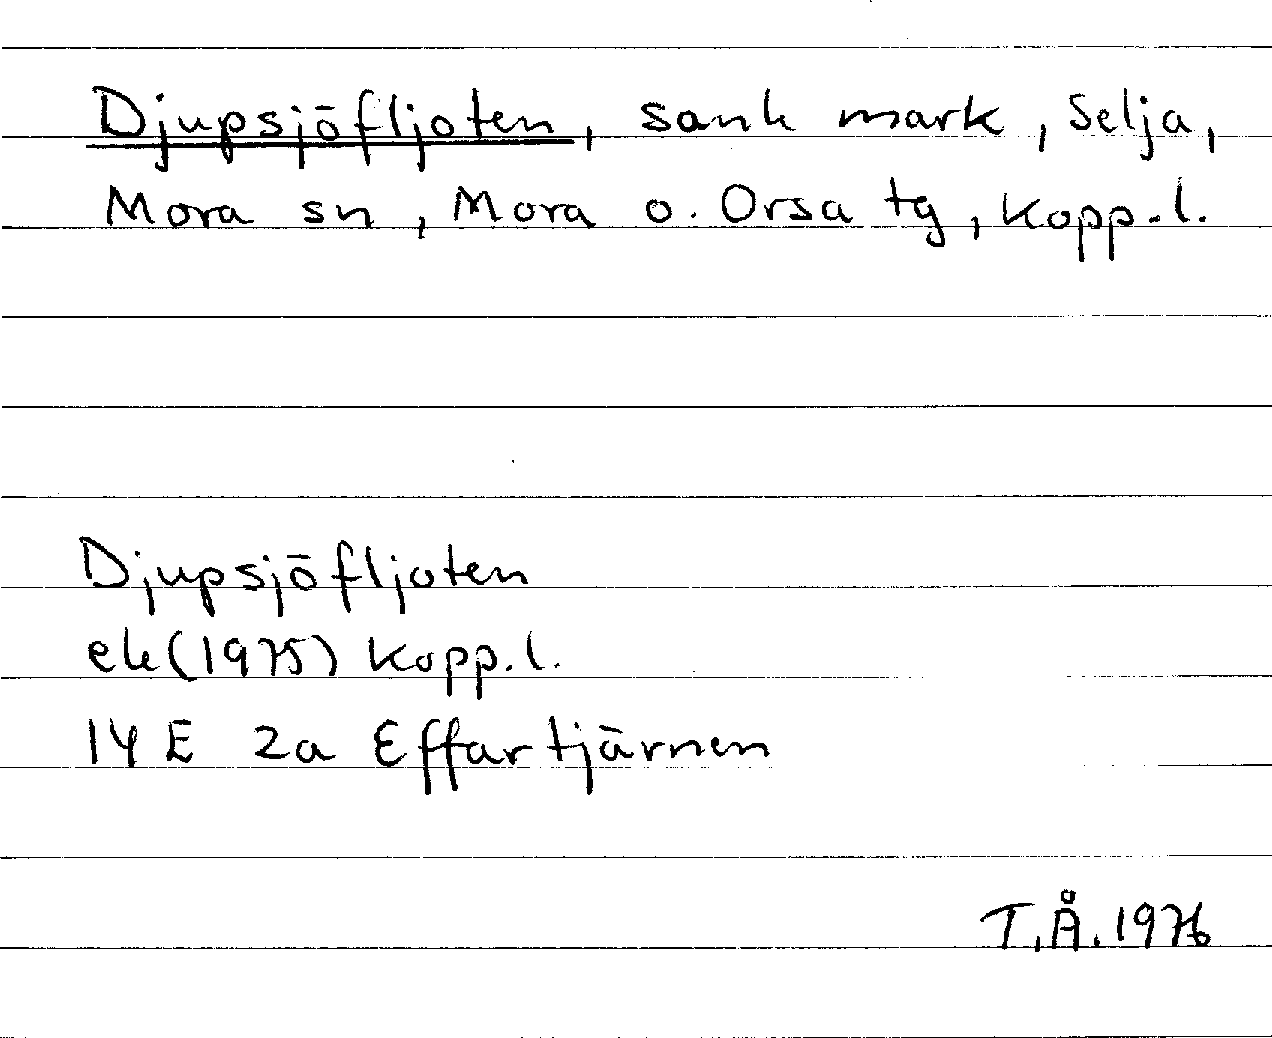 Djupsjöfljoten, sank mark, Selja,
Mora sn, Mora o. Orsa tg, Kopp.l.
Djupsjöfljoten
ek(1975) Kopp.l.
14 E 2a Effartjärnen
T.Å.1976